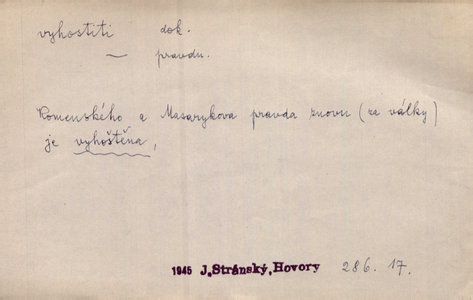 vyhostiti dok.
— pravdu.
Komenského a Masarykova pravda znovu (za války)
je vyhoštěna,
1945 J. Stránský, Hovory 286. 17.